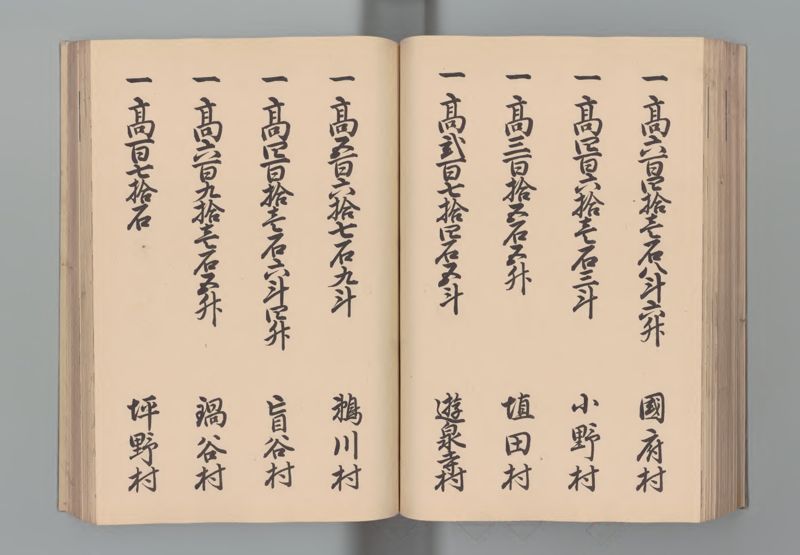 一高六百四拾壱石八斗六升 國府村
一高四百六拾壱石三斗 小野村
一高三百拾五石五升 埴田村
一高弐百七拾四石五斗 遊泉寺村
一高五百六拾七石九斗 鵜川村
一高四百拾壱石六斗四升 盲谷村
一高六百九拾壱石五升 鍋谷村
一高百七拾石 坪野村